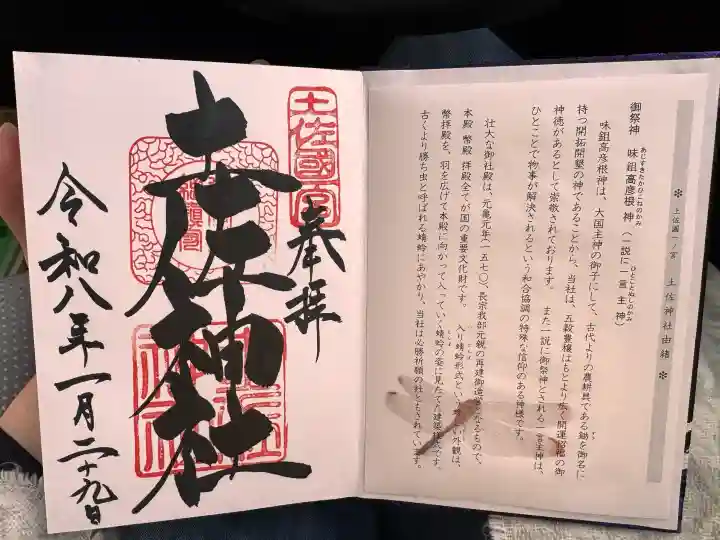 土佐國一ノ宮 土佐神社由緒
御祭神 味鉏高彦根神(一説に一言主神)
あじすきたかひこねのかみ
ひとことぬしのかみ
味鉏高彦根神は、大国主神の御子にして、古代よりの農耕具である鋤を御名に
すき
持つ開拓開墾の神であることから、当社は、五穀豊穣はもとより広く開運招福の御
神徳があるとして崇敬されております。 また一説に御祭神とされる一言主神は、
ひとことで物事が解決されるという和合協調の特殊な信仰のある神様です。
壮大な御社殿は、元亀元年(一五七〇)、長宗我部元親の再建御造
なるもので、
本殿 幣殿 拝殿全てが国の重要文化財です。 入り蜻蛉形式とい
い外観は、
とんぼ
幣拝殿を、羽を広げて本殿に向かって入っていく蜻蛉の姿に見たてた建築様式です。
とんぼ
古くより勝ち虫と呼ばれる蜻蛉にあやかり、当社は必勝祈願の社ともされています。
土佐國一
奉拝
土佐神社
令和八年一月二十九日